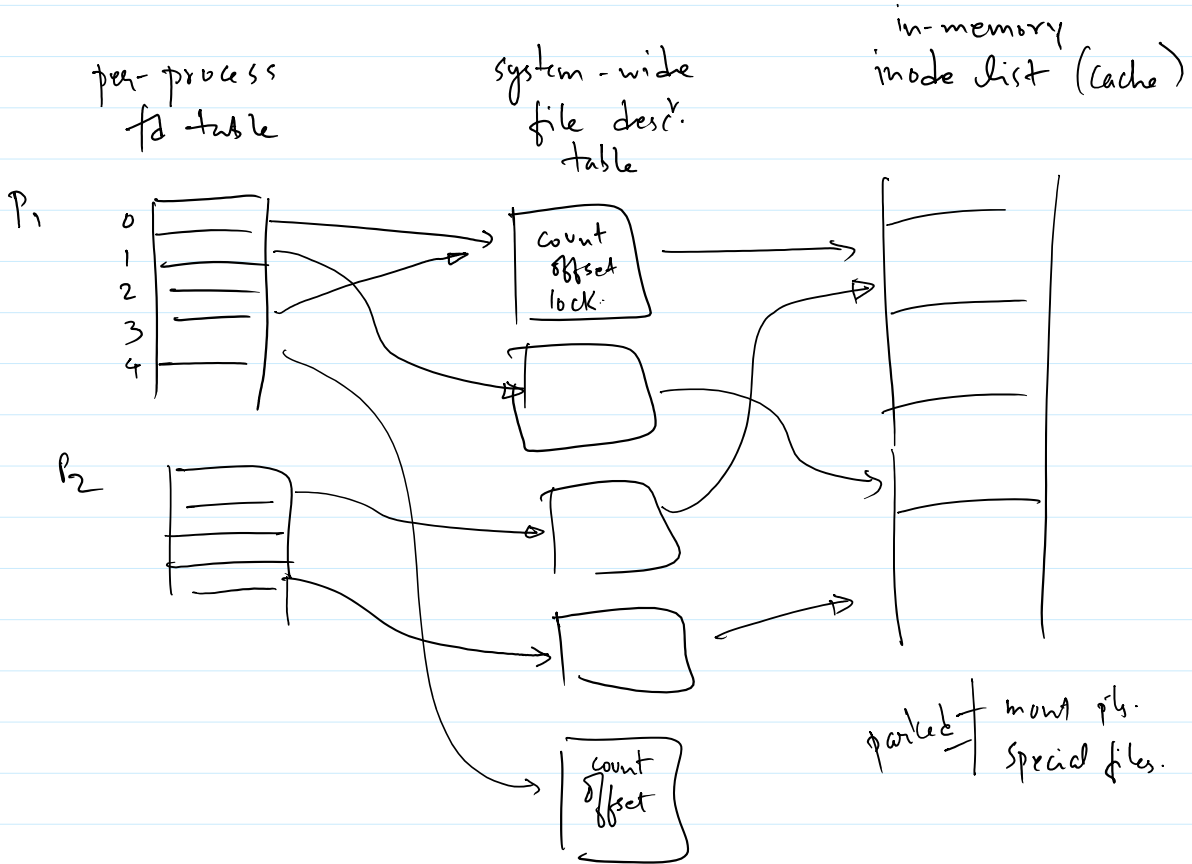 per-process
fd table
system-wide
file descr.
table
in-memory
inode list (cache)
P1
0
1
2
3
4
count
offset
lock.
P2
count
offset
parked
mount pts.
special files.